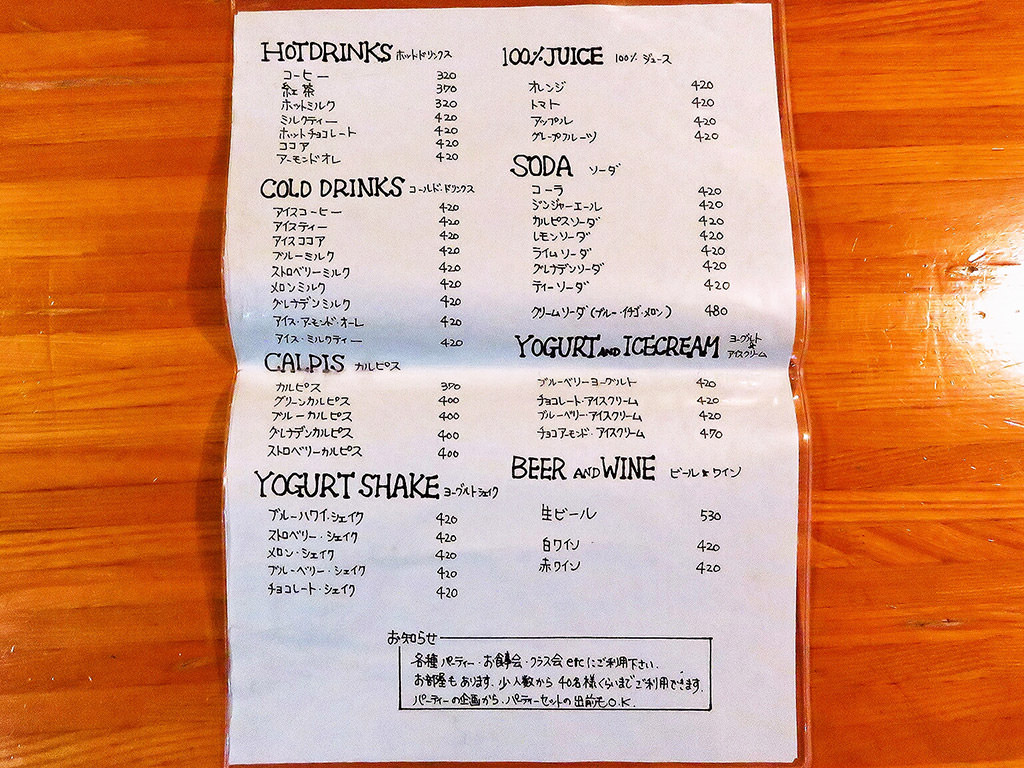 HOT DRINKS ホットドリンクス
コーヒー 320
紅茶 370
ホットミルク 320
ミルクティー 420
ホットチョコレート 420
ココア 420
アーモンドオレ 420
COLD DRINKS コールド・ドリンクス
アイスコーヒー 420
アイスティー 420
アイスココア 420
ブルーミルク 420
ストロベリーミルク 420
メロンミルク 420
グレナデンミルク 420
アイス・アーモンド・オーレ 420
アイス・ミルクティー 420
CALPIS カルピス
カルピス 370
グリーンカルピス 400
ブルーカルピス 400
グレナデンカルピス 400
ストロベリーカルピス 400
YOGURT SHAKE ヨーグルトシェイク
ブルーハワイ・シェイク 420
ストロベリー・シェイク 420
メロン・シェイク 420
ブルーベリー・シェイク 420
チョコレート・シェイク 420
100%JUICE 100% ジュース
オレンジ 420
トマト 420
アップル 420
グレープフルーツ 420
SODA ソーダ
コーラ 420
ジンジャーエール 420
カルピスソーダ 420
レモンソーダ 420
ライムソーダ 420
グレナデンソーダ 420
ティーソーダ 420
クリームソーダ(ブルー・イチゴ・メロン) 480
YOGURT AND ICECREAM ヨーグルト&アイスクリーム
ブルーベリーヨーグルト 420
チョコレート・アイスクリーム 420
ブルーベリー・アイスクリーム 420
チョコアーモンド・アイスクリーム 470
BEER AND WINE ビール&ワイン
生ビール 530
白ワイン 420
赤ワイン 420
お知らせ
各種パーティー・お食事会・クラス会etcにご利用下さい.
お部屋もあります.少人数から40名様くらいまでご利用できます.
パーティーの企画から、パーティーセットの出前もO.K.